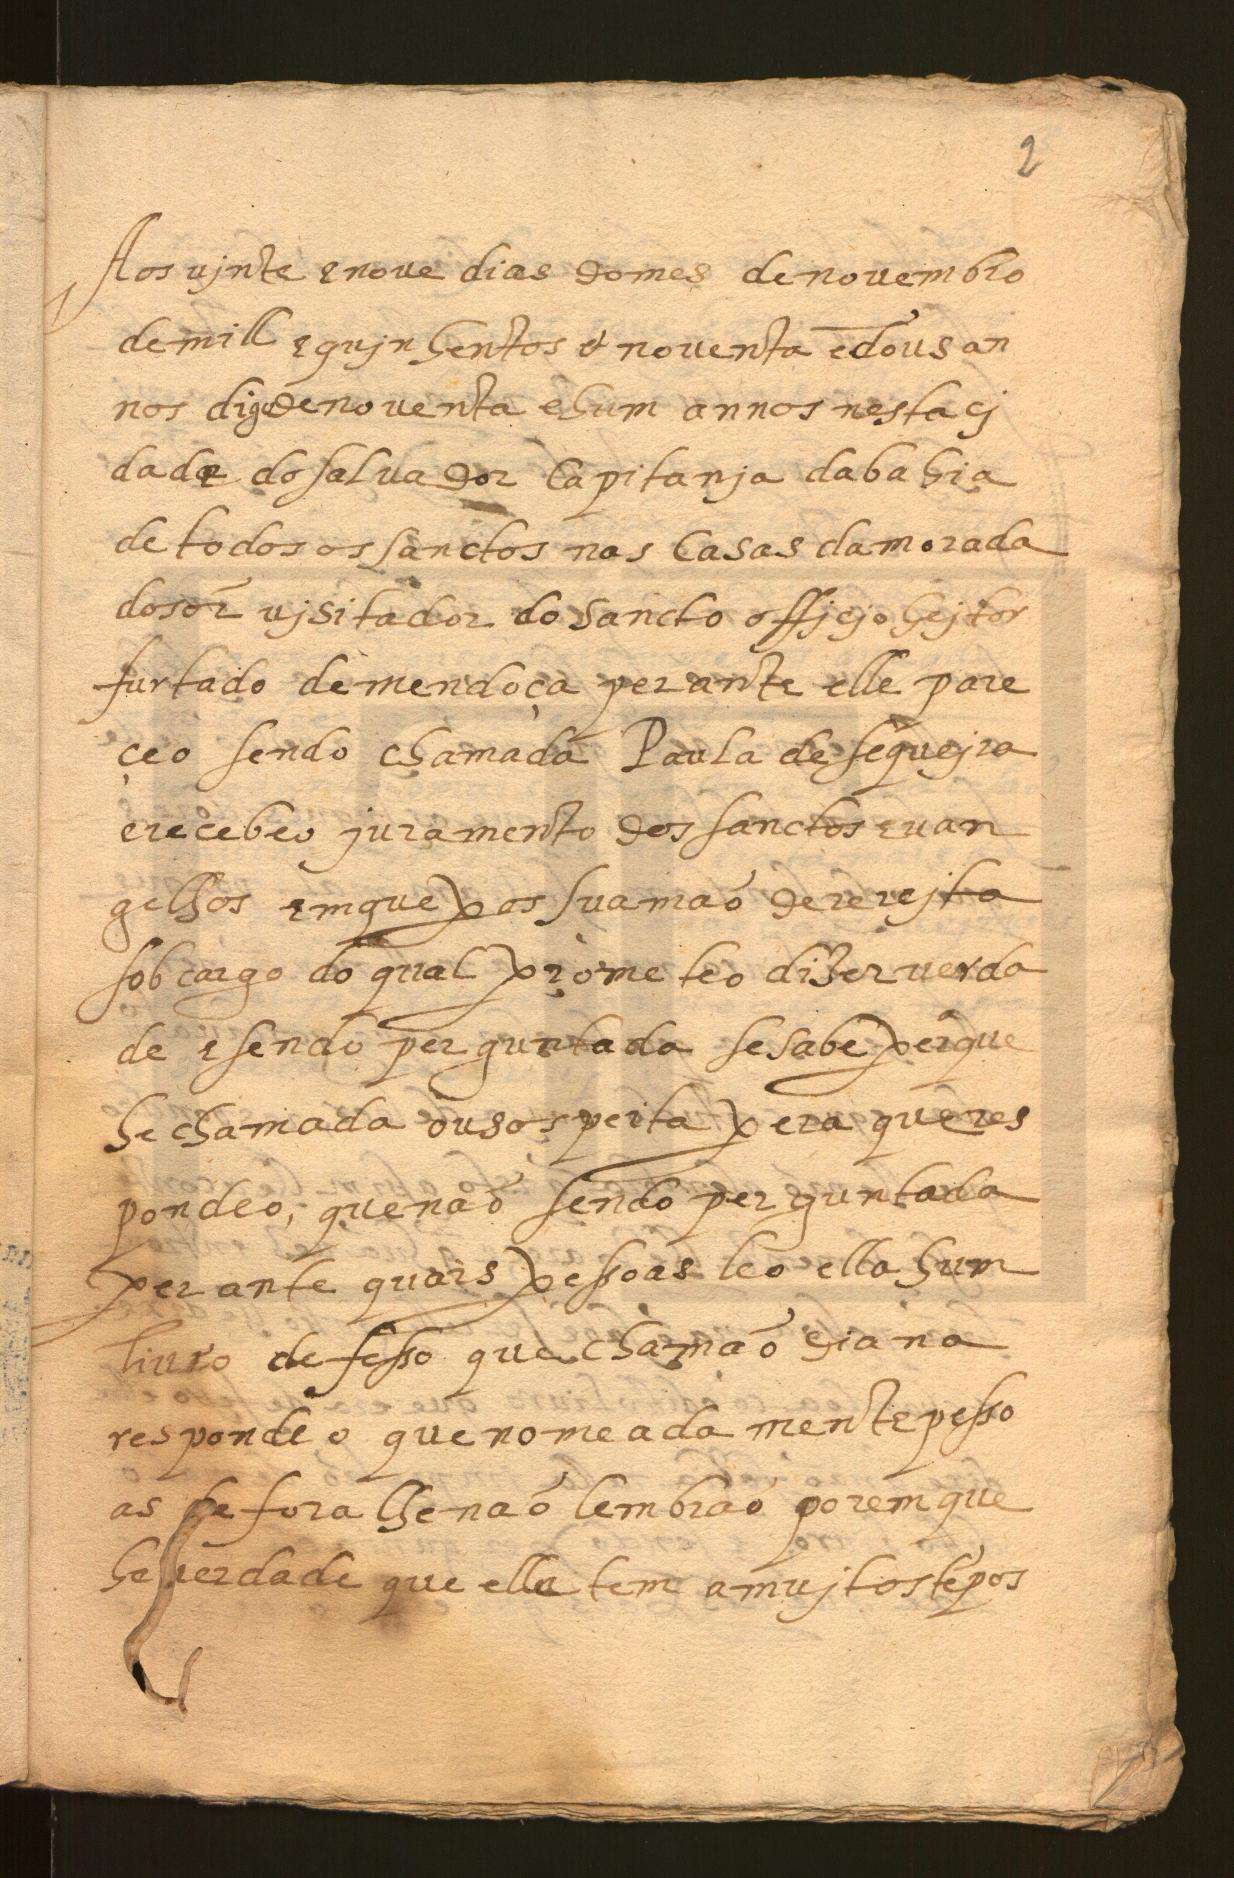 2
Aos vjnte e nove dias do mes de novembro
de mill e qujnhentos & noventa e dous an
nos digo de noventa e hum annos nesta cj
dade do salvador Capitanja da bahia
de todos os sanctos nas Casas da morada
do sor̃ vjsitador do sancto officjo hejtor
furtado de mendoça perante elle pare
çeo sendo chamada Paula de sequejra
e recebeo juramento dos sanctos evan
gelhos em que pos sua maõ derejta
sob cargo do qual prometeo dizer verda
de e sendo perguntada se sabe perque
he chamada ou sospeita pera que res
pondeo, que naõ sendo perguntada
perante quais pessoas leo ella hum
livro defesso que chamaõ diana
respondeo que nomeadamente pesso
as de fora lhe naõ lembraõ porem que
he verdade que ella tem a mujtos tẽpos